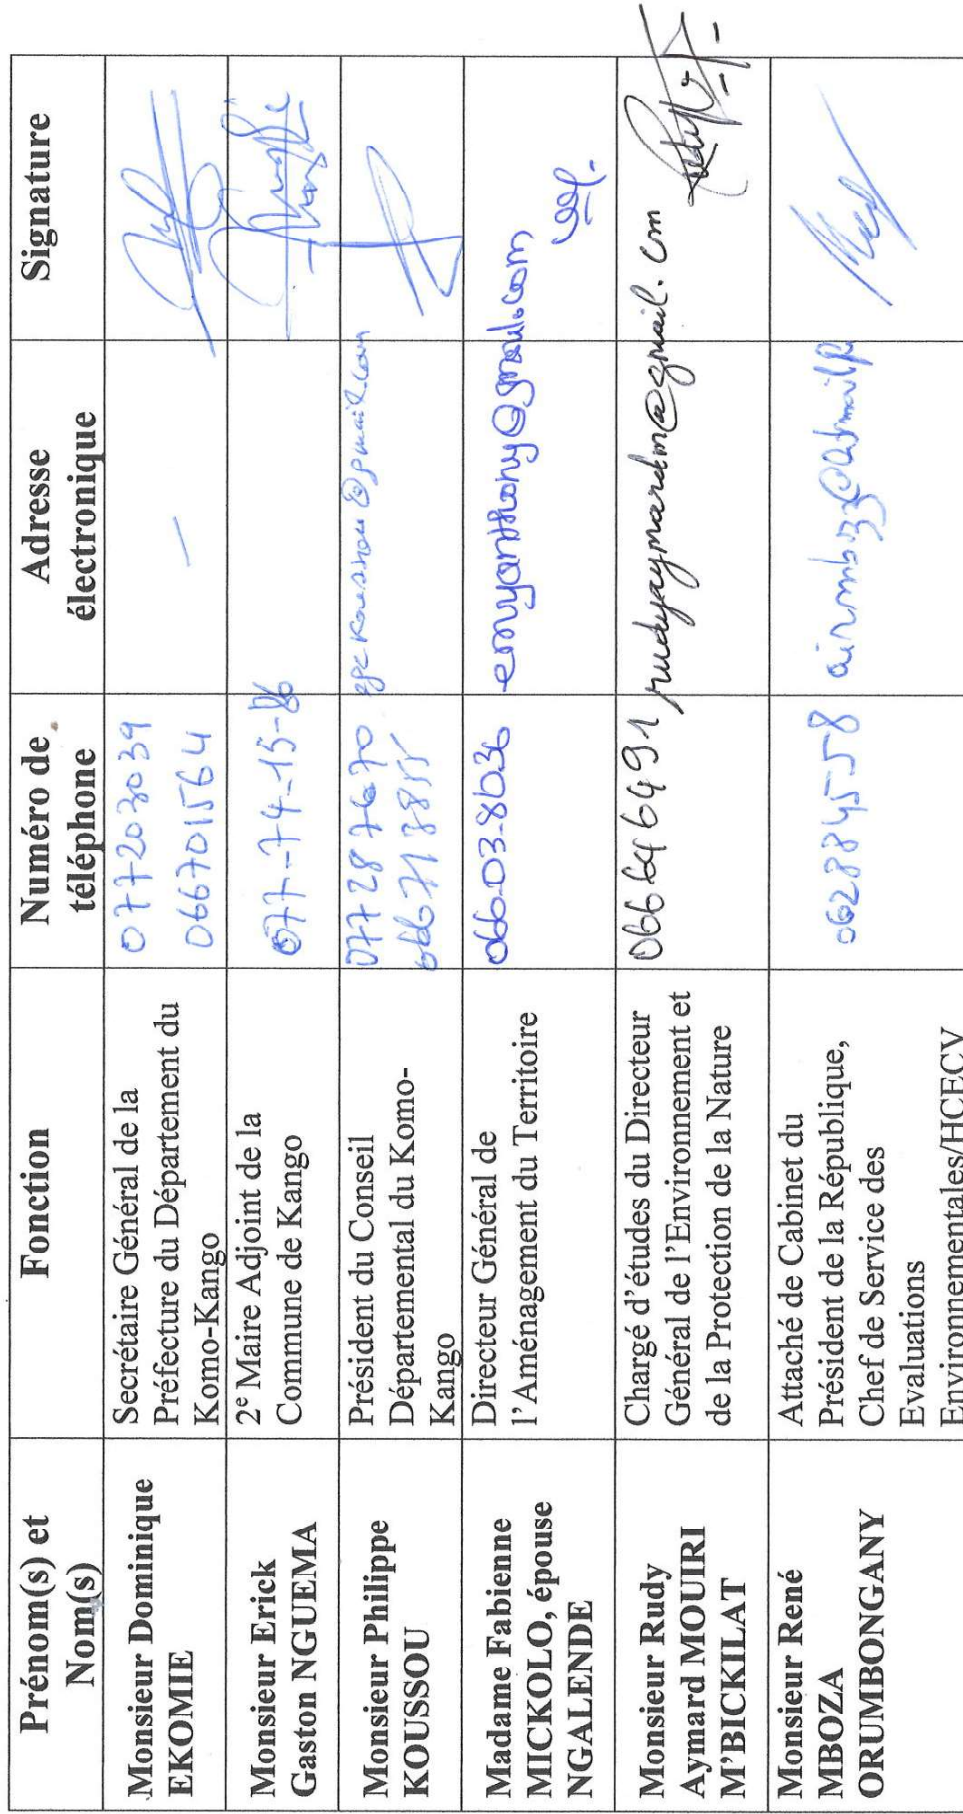 Prénom(s) et
Nom(s)
Fonction
Numéro de
téléphone
Adresse
électronique
Signature
Monsieur Dominique
EKOMIE
Secrétaire Général de la
Préfecture du Département du
Komo-Kango
077203039
066701564
Monsieur Erick
Gaston NGUEMA
2e Maire Adjoint de la
Commune de Kango
077-74-15-86
Monsieur Philippe
KOUSSOU
Président du Conseil
Départemental du Komo-
Kango
077287670
Madame Fabienne
MICKOLO, épouse
NGALENDE
Directeur Général de
l'Aménagement du Territoire
066-03-8036
emyanthony@gmail.com
Monsieur Rudy
Aymard MOUIRI
M'BICKILAT
Chargé d'études du Directeur
Général de l'Environnement et
de la Protection de la Nature
rudyaymardm@gmail.com
Monsieur René
MBOZA
ORUMBONGANY
Attaché de Cabinet du
Président de la République,
Chef de Service des
Evaluations
Environnementales/HCECV
062884558